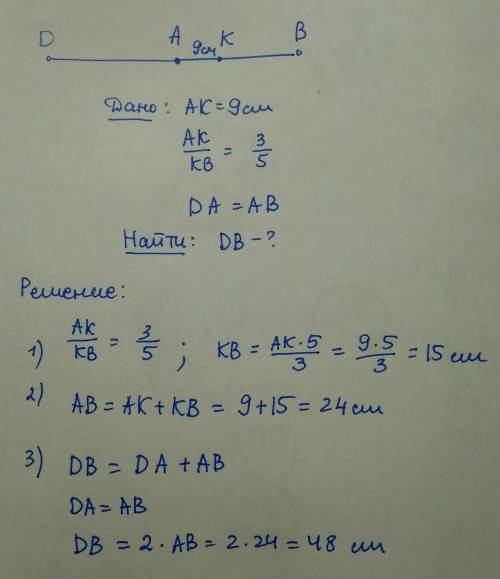 D A 9см K B
Дано: AK = 9см
AK/KB = 3/5
DA = AB
Найти: DB - ?
Решение:
1) AK/KB = 3/5 ; KB = AK·5/3 = 9·5/3 = 15 см
2) AB = AK + KB = 9 + 15 = 24 см
3) DB = DA + AB
DA = AB
DB = 2 · AB = 2 · 24 = 48 см